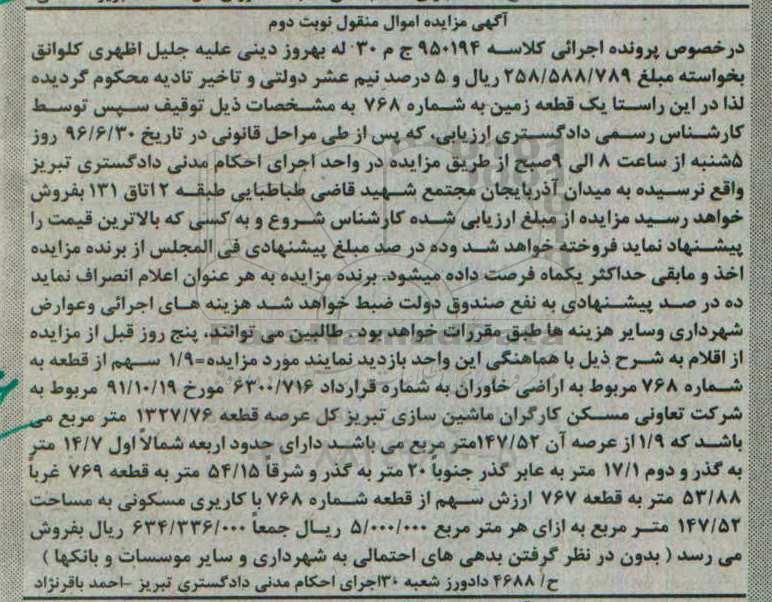 آگهی مزایده اموال منقول نوبت دوم
درخصوص پرونده اجرائی کلاسه ۹۵۰۱۹۴ ج م ۳۰ له بهروز دینی علیه جلیل اظهری کلوانق
بخواسته مبلغ ۲۵۸/۵۸۸/۷۸۹ ریال و ۵ درصد نیم عشر دولتی و تاخیر تادیه محکوم گردیده
لذا در این راستا یک قطعه زمین به شماره ۷۶۸ به مشخصات ذیل توقیف سپس توسط
کارشناس رسمی دادگستری ارزیابی، که پس از طی مراحل قانونی در تاریخ ۹۶/۶/۳۰ روز
۵شنبه از ساعت ۸ الی ۹صبح از طریق مزایده در واحد اجرای احکام مدنی دادگستری تبریز
واقع نرسیده به میدان آذربایجان مجتمع شهید قاضی طباطبایی طبقه ۲ اتاق ۱۳۱ بفروش
خواهد رسید مزایده از مبلغ ارزیابی شده کارشناس شروع و به کسی که بالاترین قیمت را
پیشنهاد نماید فروخته خواهد شد وده در صد مبلغ پیشنهادی فی المجلس از برنده مزایده
اخذ و مابقی حداکثر یکماه فرصت داده میشود. برنده مزایده به هر عنوان اعلام انصراف نماید
ده در صد پیشنهادی به نفع صندوق دولت ضبط خواهد شد هزینه های اجرائی وعوارض
شهرداری وسایر هزینه ها طبق مقررات خواهد بود. طالبین می توانند، پنج روز قبل از مزایده
از اقلام به شرح ذیل با هماهنگی این واحد بازدید نمایند مورد مزایده=۱/۹ سهم از قطعه به
شماره ۷۶۸ مربوط به اراضی خاوران به شماره قرارداد ۶۳۰۰/۷۱۶ مورخ ۹۱/۱۰/۱۹ مربوط به
شرکت تعاونی مسکن کارگران ماشین سازی تبریز کل عرصه قطعه ۱۳۲۷/۷۶ متر مربع می
باشد که ۱/۹ از عرصه آن ۱۴۷/۵۲متر مربع می باشد دارای حدود اربعه شمالاً اول ۱۴/۷ متر
به گذر و دوم ۱۷/۱ متر به عابر گذر جنوباً ۲۰ متر به گذر و شرقاً ۵۴/۱۵ متر به قطعه ۷۶۹ غرباً
۵۳/۸۸ متر به قطعه ۷۶۷ ارزش سهم از قطعه شماره ۷۶۸ با کاربری مسکونی به مساحت
۱۴۷/۵۲ متر مربع به ازای هر متر مربع ۵/۰۰۰/۰۰۰ ریال جمعاً ۶۳۴/۳۳۶/۰۰۰ ریال بفروش
می رسد ( بدون در نظر گرفتن بدهی های احتمالی به شهرداری و سایر موسسات و بانکها )
ح/ ۴۶۸۸ دادورز شعبه ۳۰اجرای احکام مدنی دادگستری تبریز -احمد باقرنژاد